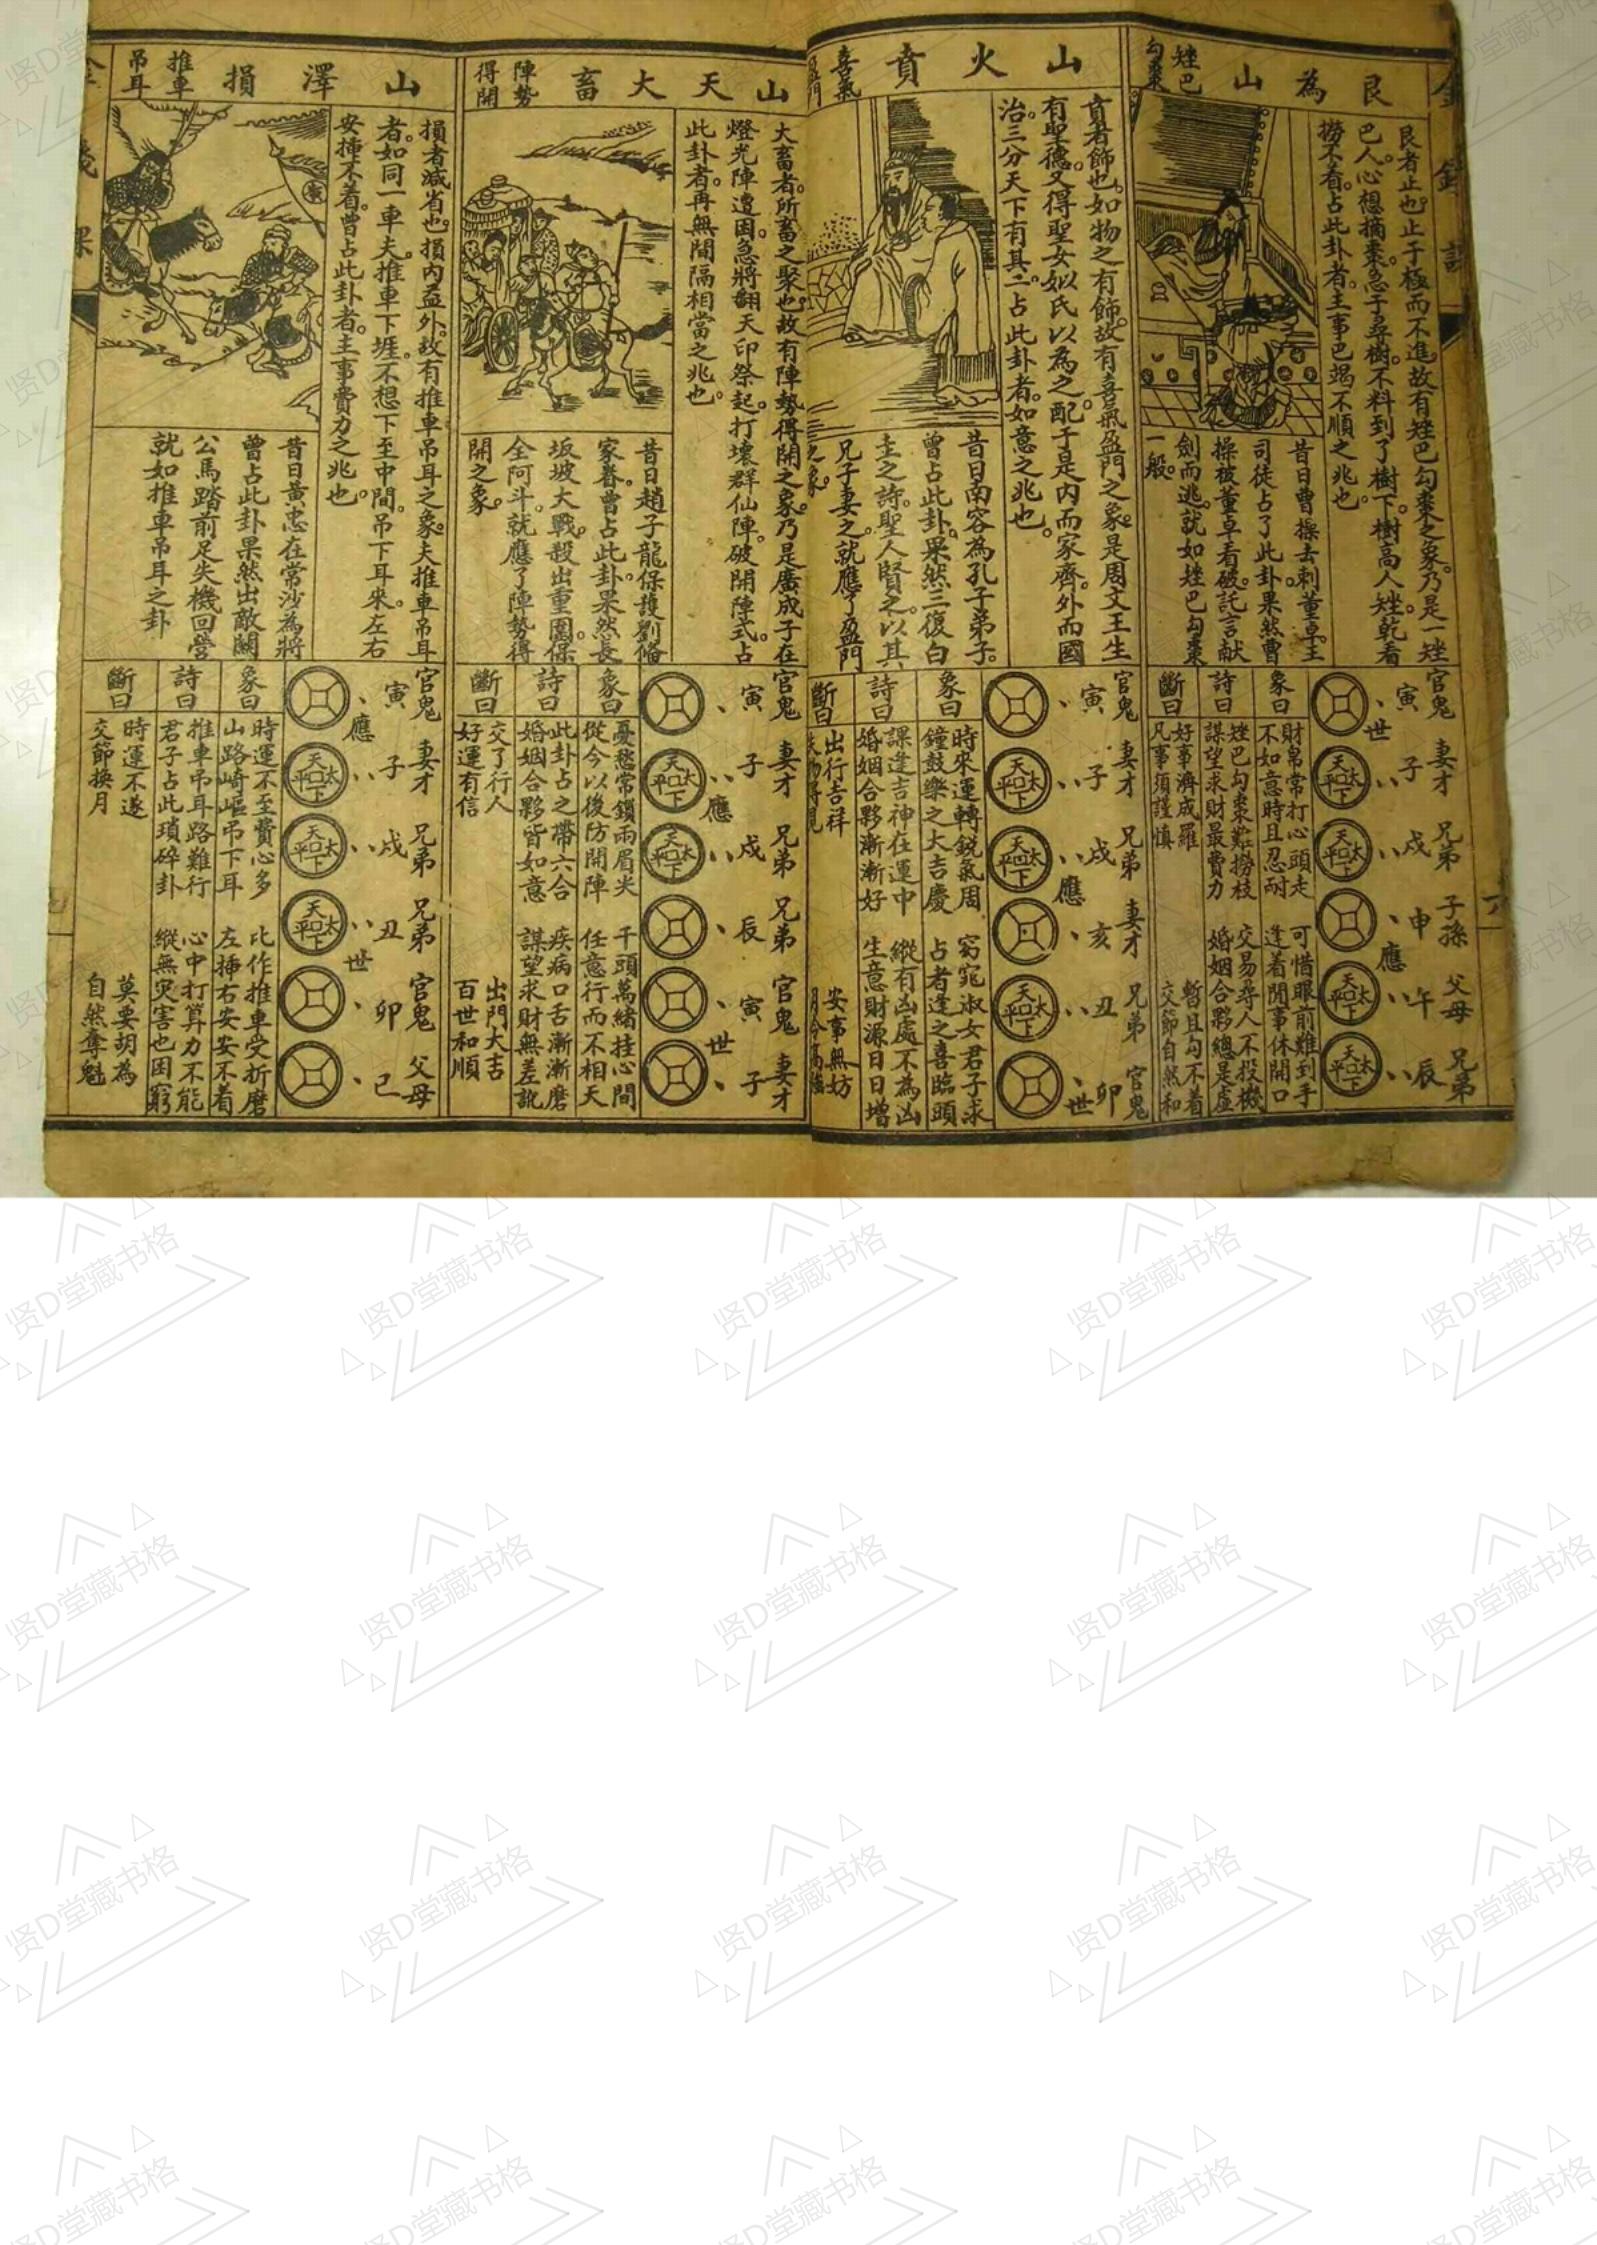 艮為山
矬巴
勾棗
艮者止也。止于極而不進。故有矬巴勾棗之象。乃是一矬
巴人。心想摘棗。急于尋樹。不料到了樹下。樹高人矬。乾看
撈不着。占此卦者。主事巴竭不順之兆也。
昔日曹操去刺董卓。王
司徒占了此卦。果然曹
操被董卓看破。託言献
劍而逃。就如矬巴勾棗
一般。
官鬼 妻才 兄弟 子孫 父母 兄弟
寅 子 戌 申 午 辰
世 應
太平天下
太平天下
太平天下
太平天下
象曰
財帛常打心頭走 可惜眼前難到手
不如意時且忍耐 逢着閒事休開口
詩曰
矬巴勾棗難撈枝 交易尋人不投機
謀望求財最費力 婚姻合夥總是虛
斷曰
好事濟成羅 暫且勾不着
凡事須謹慎 交節自然和
山火賁
喜氣
賁者飾也。如物之有飾。故有喜氣盈門之象。是周文王生
有聖德。又得聖女姒氏以為之配。于是内而家齊。外而國
治。三分天下有其二。占此卦者。如意之兆也。
昔日南容為孔子弟子。
曾占此卦。果然三復白
圭之詩。聖人賢之。以其
兄子妻之。就應了盈門
之象。
官鬼 妻才 兄弟 妻才 兄弟 官鬼
寅 子 戌 亥 丑 卯
應 世
太平天下
太平天下
太平天下
象曰
時來運轉鋭氣周 窈窕淑女君子求
鐘鼓樂之大吉慶 占者逢之喜臨頭
詩曰
課逢吉神在運中 縱有凶處不為凶
婚姻合夥漸漸好 生意財源日日增
斷曰
出行吉祥 安事無妨
山天大畜
陣勢
得開
大畜者。所畜之聚也。故有陣勢得開之象。乃是廣成子在
燈光陣遭困。急將翻天印祭起。打壞群仙陣。破開陣式。占
此卦者。再無間隔相當之兆也。
昔日趙子龍保護劉備
家眷。曾占此卦。果然長
坂坡大戰。殺出重圍。保
全阿斗。就應了陣勢得
開之象。
官鬼 妻才 兄弟 兄弟 官鬼 妻才
寅 子 戌 辰 寅 子
應 世
太平天下
太平天下
象曰
憂愁常鎖兩眉尖 千頭萬緒挂心間
從今以後防開陣 任意行而不相天
詩曰
此卦占之帶六合 疾病口舌漸漸磨
婚姻合夥皆如意 謀望求財無差訛
斷曰
交了行人 出門大吉
好運有信 百世和順
山澤損
推車
吊耳
損者減省也。損内益外。故有推車吊耳之象。夫推車吊耳
者。如同一車夫。推車下堐。不想下至中間。吊下耳來。左右
安揷不着。曾占此卦者。主事費力之兆也。
昔日黄忠在常沙為將
曾占此卦果然出敵關
公馬踏前足失機回營
就如推車吊耳之卦
官鬼 妻才 兄弟 兄弟 官鬼 父母
寅 子 戌 丑 卯 己
應 世
太平天下
太平天下
太平天下
象曰
時運不至費心多 比作推車受折磨
山路崎嶇吊下耳 左揷右安安不着
詩曰
推車吊耳路難行 心中打算力不能
君子占此瑣碎卦 縱無灾害也困窮
斷曰
時運不遂 莫要胡為
交節換月 自然奪魁